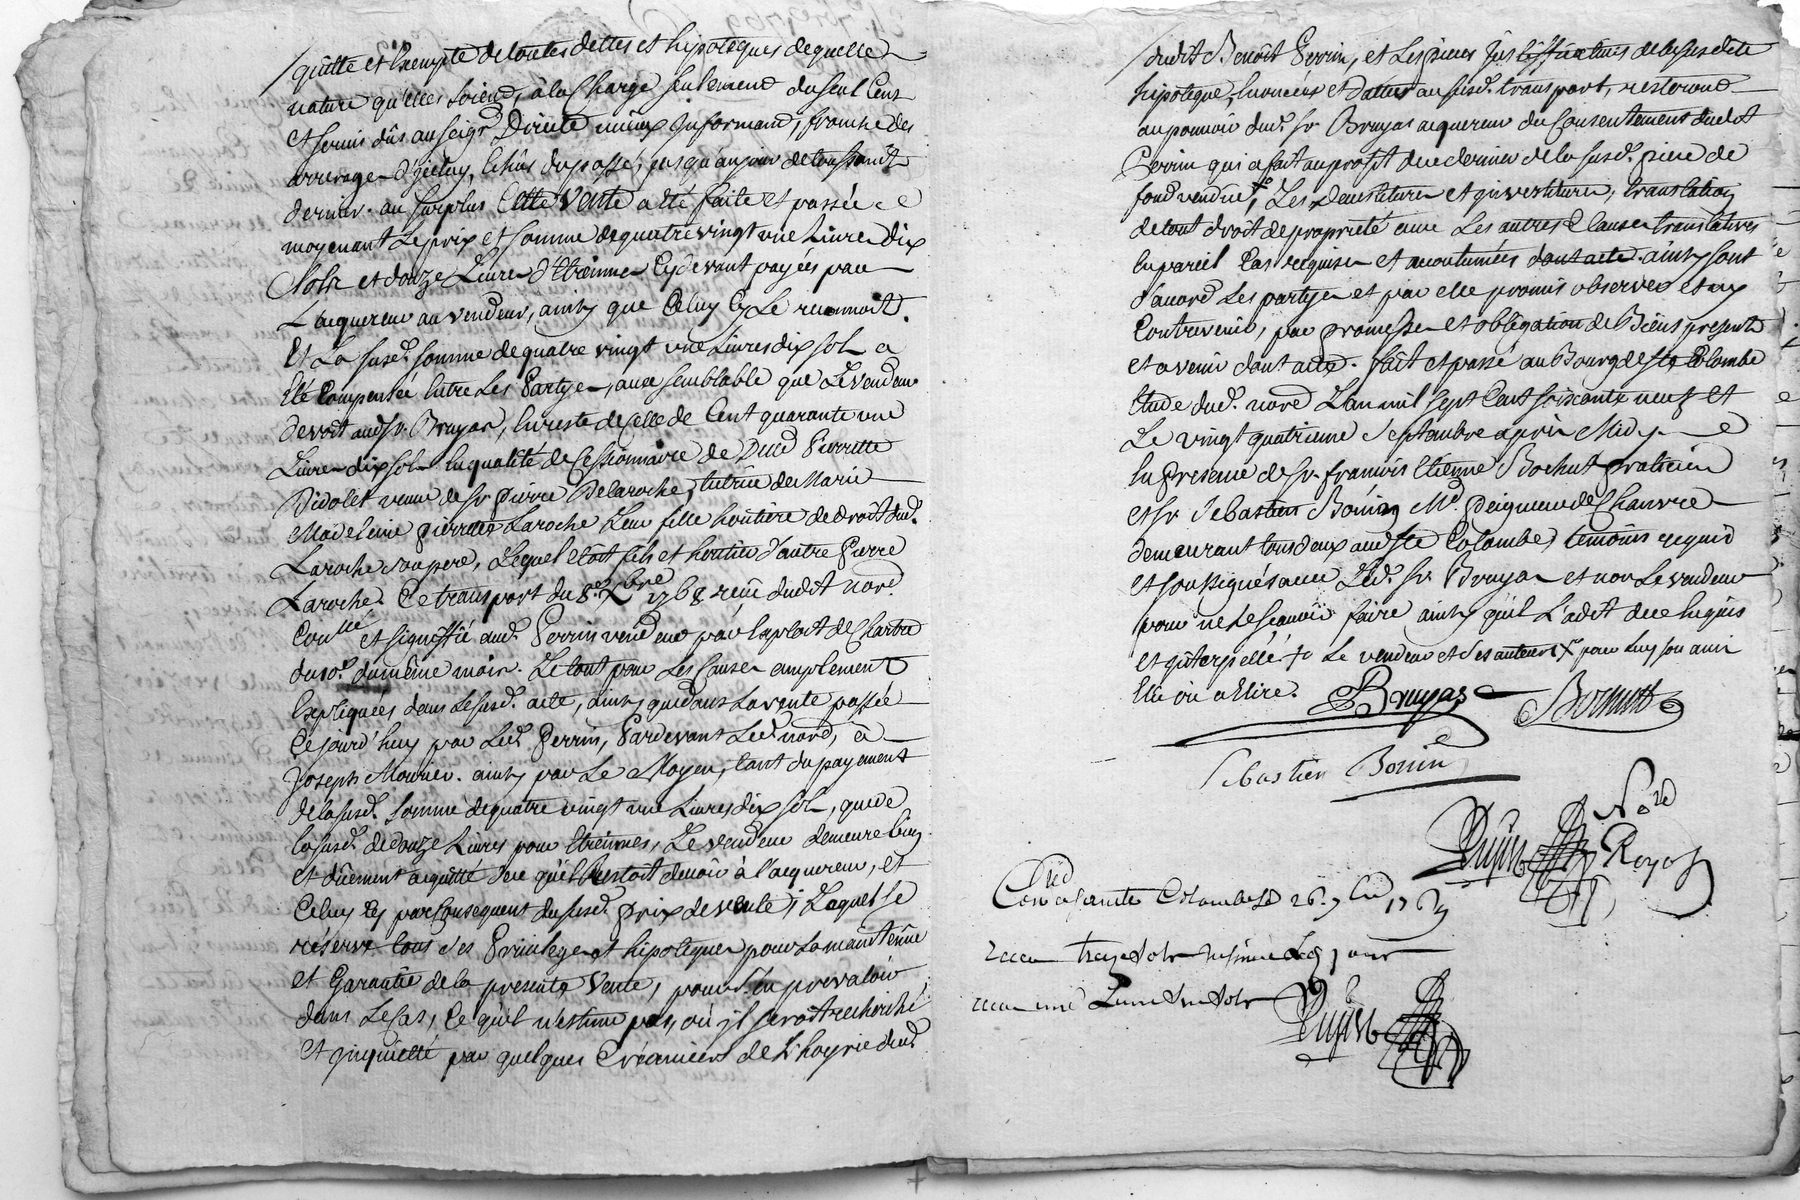 quitte et exempte de toutes dettes et hipoteques de quelle
nature qu'elles soient, à la Charge seulement du seul Cens
et servis dûs au seigr. Directe mieux informant, franche des
arrerages d'jceluy, Echûs du passé, jusqu'au jour de toussaint
dernier. au surplus Cette Vente a été faite et passée
moyenant Le prix et somme de quatre vingt une Livres dix
sols et douze Livres d'Etrennes Cy devant payées par
L'acquereur au vendeur, ainsy que Celuy Cy Le reconnoit.
Et La susd. somme de quatre vingt une Livres dix sols a
Eté Compensée Entre Les Partyes, avec semblable que Le vendeur
devoit aud. sr. Bruyas, En reste de Celle de Cent quarante une
Livres dix sols En qualité de Cessionnaire de Pierrette
Didolet veuve de sr. Pierre Delaroche, tutrice de Marie
Madeleine Pierrette Laroche Leur fille heritiere de droit dud.
Laroche son pere, Lequel etoit fils et heritier d'autre Pierre
Laroche. Ce transport du 8e. Xbre 1768 reçu dudit nore.
Conllé et signiffié aud. Perrin vendeur par Exploit de Chartre
du 10e. du même mois. Le tout pour Les Causes amplement
Expliquées dans Le susd. acte, ainsy que dans La vente passée
Cejourd'huy par Led. Perrin, Pardevant Led. nore, à
Joseph Mounier. ainsy par Le Moyen, tant du payement
de la susd. somme de quatre vingt une Livres dix sols, que de
la susd. de douze Livres pour Etrennes, Le vendeur demeure bien
et dûement acquitté de ce qu'il Restoit devoir à l'acquereur, et
Celuy Cy par Consequent du susd. prix de vente; Lequel se
réserve tous ses Privileges et hipoteques pour La maintenüe
et Garantie de la presente Vente, pour s'En prevaloir
dans Le Cas, Ce qu'il n'estime pas, où jl seroit recherché
et jnquietté par quelques Créanciers de L'hoyrie dud.
dudit Benoit Perrin, et Les pieces justifficatives de la susdite
hipoteque, Enoncées et dattées au susd. transport, resteront
au pouvoir dud. sr. Bruyas acquereur du Consentement dudit
Perrin qui a fait au profit de ce dernier de la susd. piece de
fond vendüe, Les Devestitures et jnvestitures, translation
de tout droit de proprieté avec Les autres Clauses translatives
En pareil Cas requises et accoutumées dont acte. ainsy sont
d'accord Les partyes et par elle promis observer et n'y
Contrevenir, par promesse et obligation de Biens presents
et a venir dont acte. fait et passé au Bourg de ste Colombe
Etude dud. nore L'an mil sept Cent soixante neuf et
Le vingt quatrieme septembre après Midy
En presence de sr. francois Etienne Bochut praticien
et sr. sebastien Bonin Md. Peigneur de Chanvre
demeurant tous deux aud. ste Colombe, temoins requis
et soussignés avec Led. sr. Bruyas et non Le vendeur
pour ne Le sçavoir faire ainsy qu'il L'a dit de ce Enquis
et jnterpellé. + Le vendeur et ses auteurs X pour Luy son ami
Elû ou a Elire. Bruyas Bochut
Sebastien Bonin
Nore
Dujast Royal
Conlé a sainte Colombe Le 26. 7bre 1769
recu treze sols
recu une Livre sols
Dujast